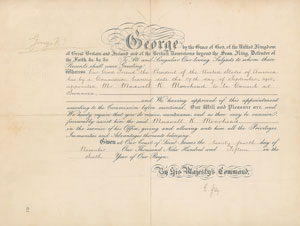 George by the Grace of God, of the United Kingdom
of Great Britain and Ireland and of the British Dominions beyond the Seas, King, Defender of
the Faith &c. &c. &c. To All and Singular Our loving Subjects to whom these
Presents shall come Greeting!
Whereas Our Good Friend the President of the United States of America
has by a Commission bearing date the day of
appointed Mr Maxwell K. Moorhead to be Consul at
and We having approved of this appointment
according to the Commission before mentioned Our Will and Pleasure are and
We hereby require that you do receive countenance and as there may be occasion
favourably assist him the said Maxwell K. Moorhead
in the exercise of his Office giving and allowing unto him all the Privileges
Immunities and Advantages thereunto belonging.
Given at Our Court of Saint James the twenty fourth day of
November One Thousand Nine Hundred and Fifteen in the
Sixth Year of Our Reign.
By His Majesty's Command,